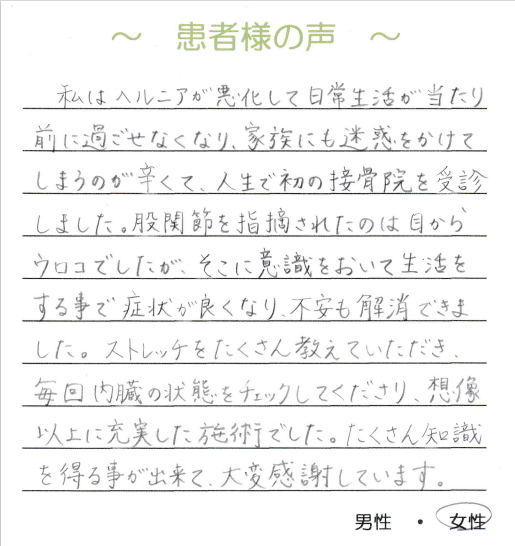 ～ 患者様の声 ～
私はヘルニアが悪化して日常生活が当たり
前に過ごせなくなり、家族にも迷惑をかけて
しまうのが辛くて、人生で初の接骨院を受診
しました。股関節を指摘されたのは目から
ウロコでしたが、そこに意識をおいて生活を
する事で症状が良くなり、不安も解消できま
した。ストレッチをたくさん教えていただき、
毎回内臓の状態をチェックしてくださり、想像
以上に充実した施術でした。たくさん知識
を得る事が出来て、大変感謝しています。
男性 ・ 女性